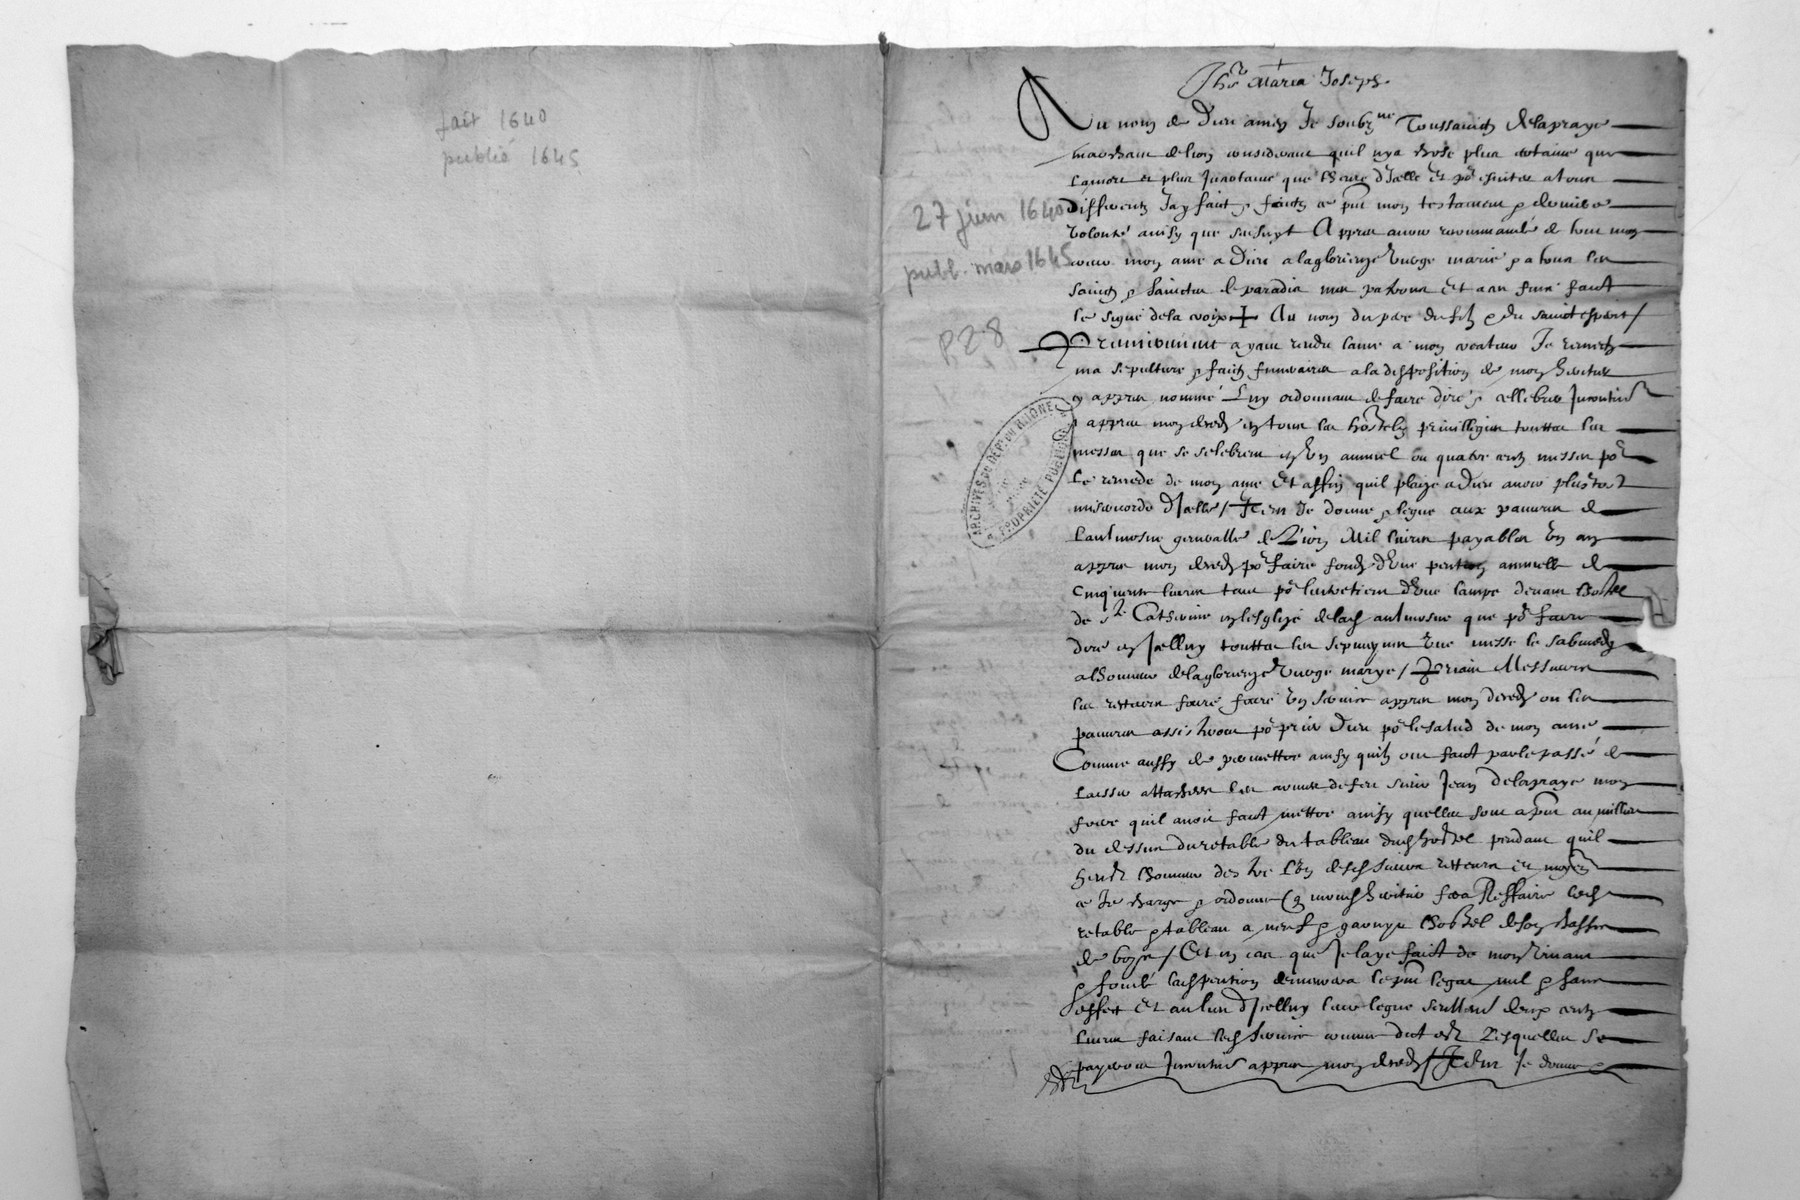 fait 1640
publié 1645
27 juin 1640
publ. mars 1645
P28
ARCHIVES DU DEPt DU RHONE
PROPRIETE PUBLIQUE
Jhs Maria Joseph
Au nom de Dieu amen Je soubzne Toussainctz Delapraye
marchant de lion considerant quil nya chose plus certaine que
la mort et plus Incertaine que lheure dIcelle Et por esviter a tous
differentz Jay faict & faictz ce pnt mon testament & derniere
volonté ainsy que sensuyt Appres avoir recommandé de tout mon
coeur mon ame a Dieu a la glorieuze vierge marie & a tous les
sainctz & sainctes de paradis mes patrons Et a ces fins faict
le signe de la croix + Au nom du pere du filz & du sainct esprit /
Premierement ayant rendu lame a mon createur Je remectz
ma sepulture & fraictz funeraires a la disposition de mon heritier
cy appres nommé Luy ordonnant de faire dire & cellebrer Incontinent
& appres mon decedz en tous les hostelz previllegies touttes les
messes que se selebrent en Un annuel ou quatre centz messes por
Le remede de mon ame Et affin quil plaize a Dieu avoir plustost
misericorde dIcelle / Item Je donne & legue aux pauvres de
Laulmosne generalle de Lion Mil livres payables Un an
appres mon decedz por faire fondz dUne pention annuelle de
Cinquante livres tant por lentretien dUne lampe devant lhostel
de Ste Catherine en lesglize de lad aulmosne que por faire
dire en Icelluy touttes les sepmaynes Une messe le sabmedy
a lhonneur de la glorieuze vierge marye / Priant Messieurs
les recteurs faire faire Un service appres mon decedz ou les
pauvres assisteront por prier Dieu por le salud de mon ame
Comme aussy de permettre ainsy quilz ont faict par le passé de
Laisser attachees les armes de feu sieur Jean Delapraye mon
frere quil avoit faict mettre ainsy quelles sont a pnt au millieu
du dessus du retable du tableau dud hostel pendant quil
heust lhonneur destre LUn desd sieurs recteurs Et moyen
ce Je charge & ordonne que mond heritier fera Reffaire led
retable & tableau a neuf & garnyr lhostel de son
de boys / Et en cas que Je laye faict de mon vivant
& fondé lad pention demeurera le pnt legat nul & sans
effect Et au lieu dIcelluy leur legue seullement deux centz
livres faisant led service comme dict est Lesquelles se
payeront Incontinent appres mon decedz / Item Je donne &